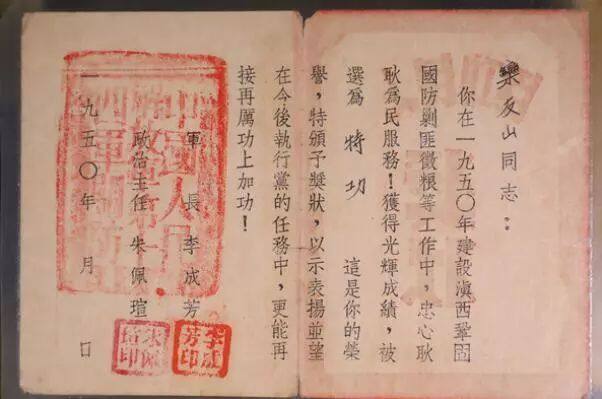 栾友山同志：
你在一九五〇年建設滇西鞏固
國防剿匪徵粮等工作中，忠心耿
耿爲民服務！獲得光輝成績，被
選爲 特功 這是你的榮
譽，特頒予獎狀，以示表揚並望
在今後執行黨的任務中，更能再
接再厲功上加功！
軍 長 李成芳
李成芳印
政治主任 朱佩瑄
朱佩瑄印
一九五〇年 月 日